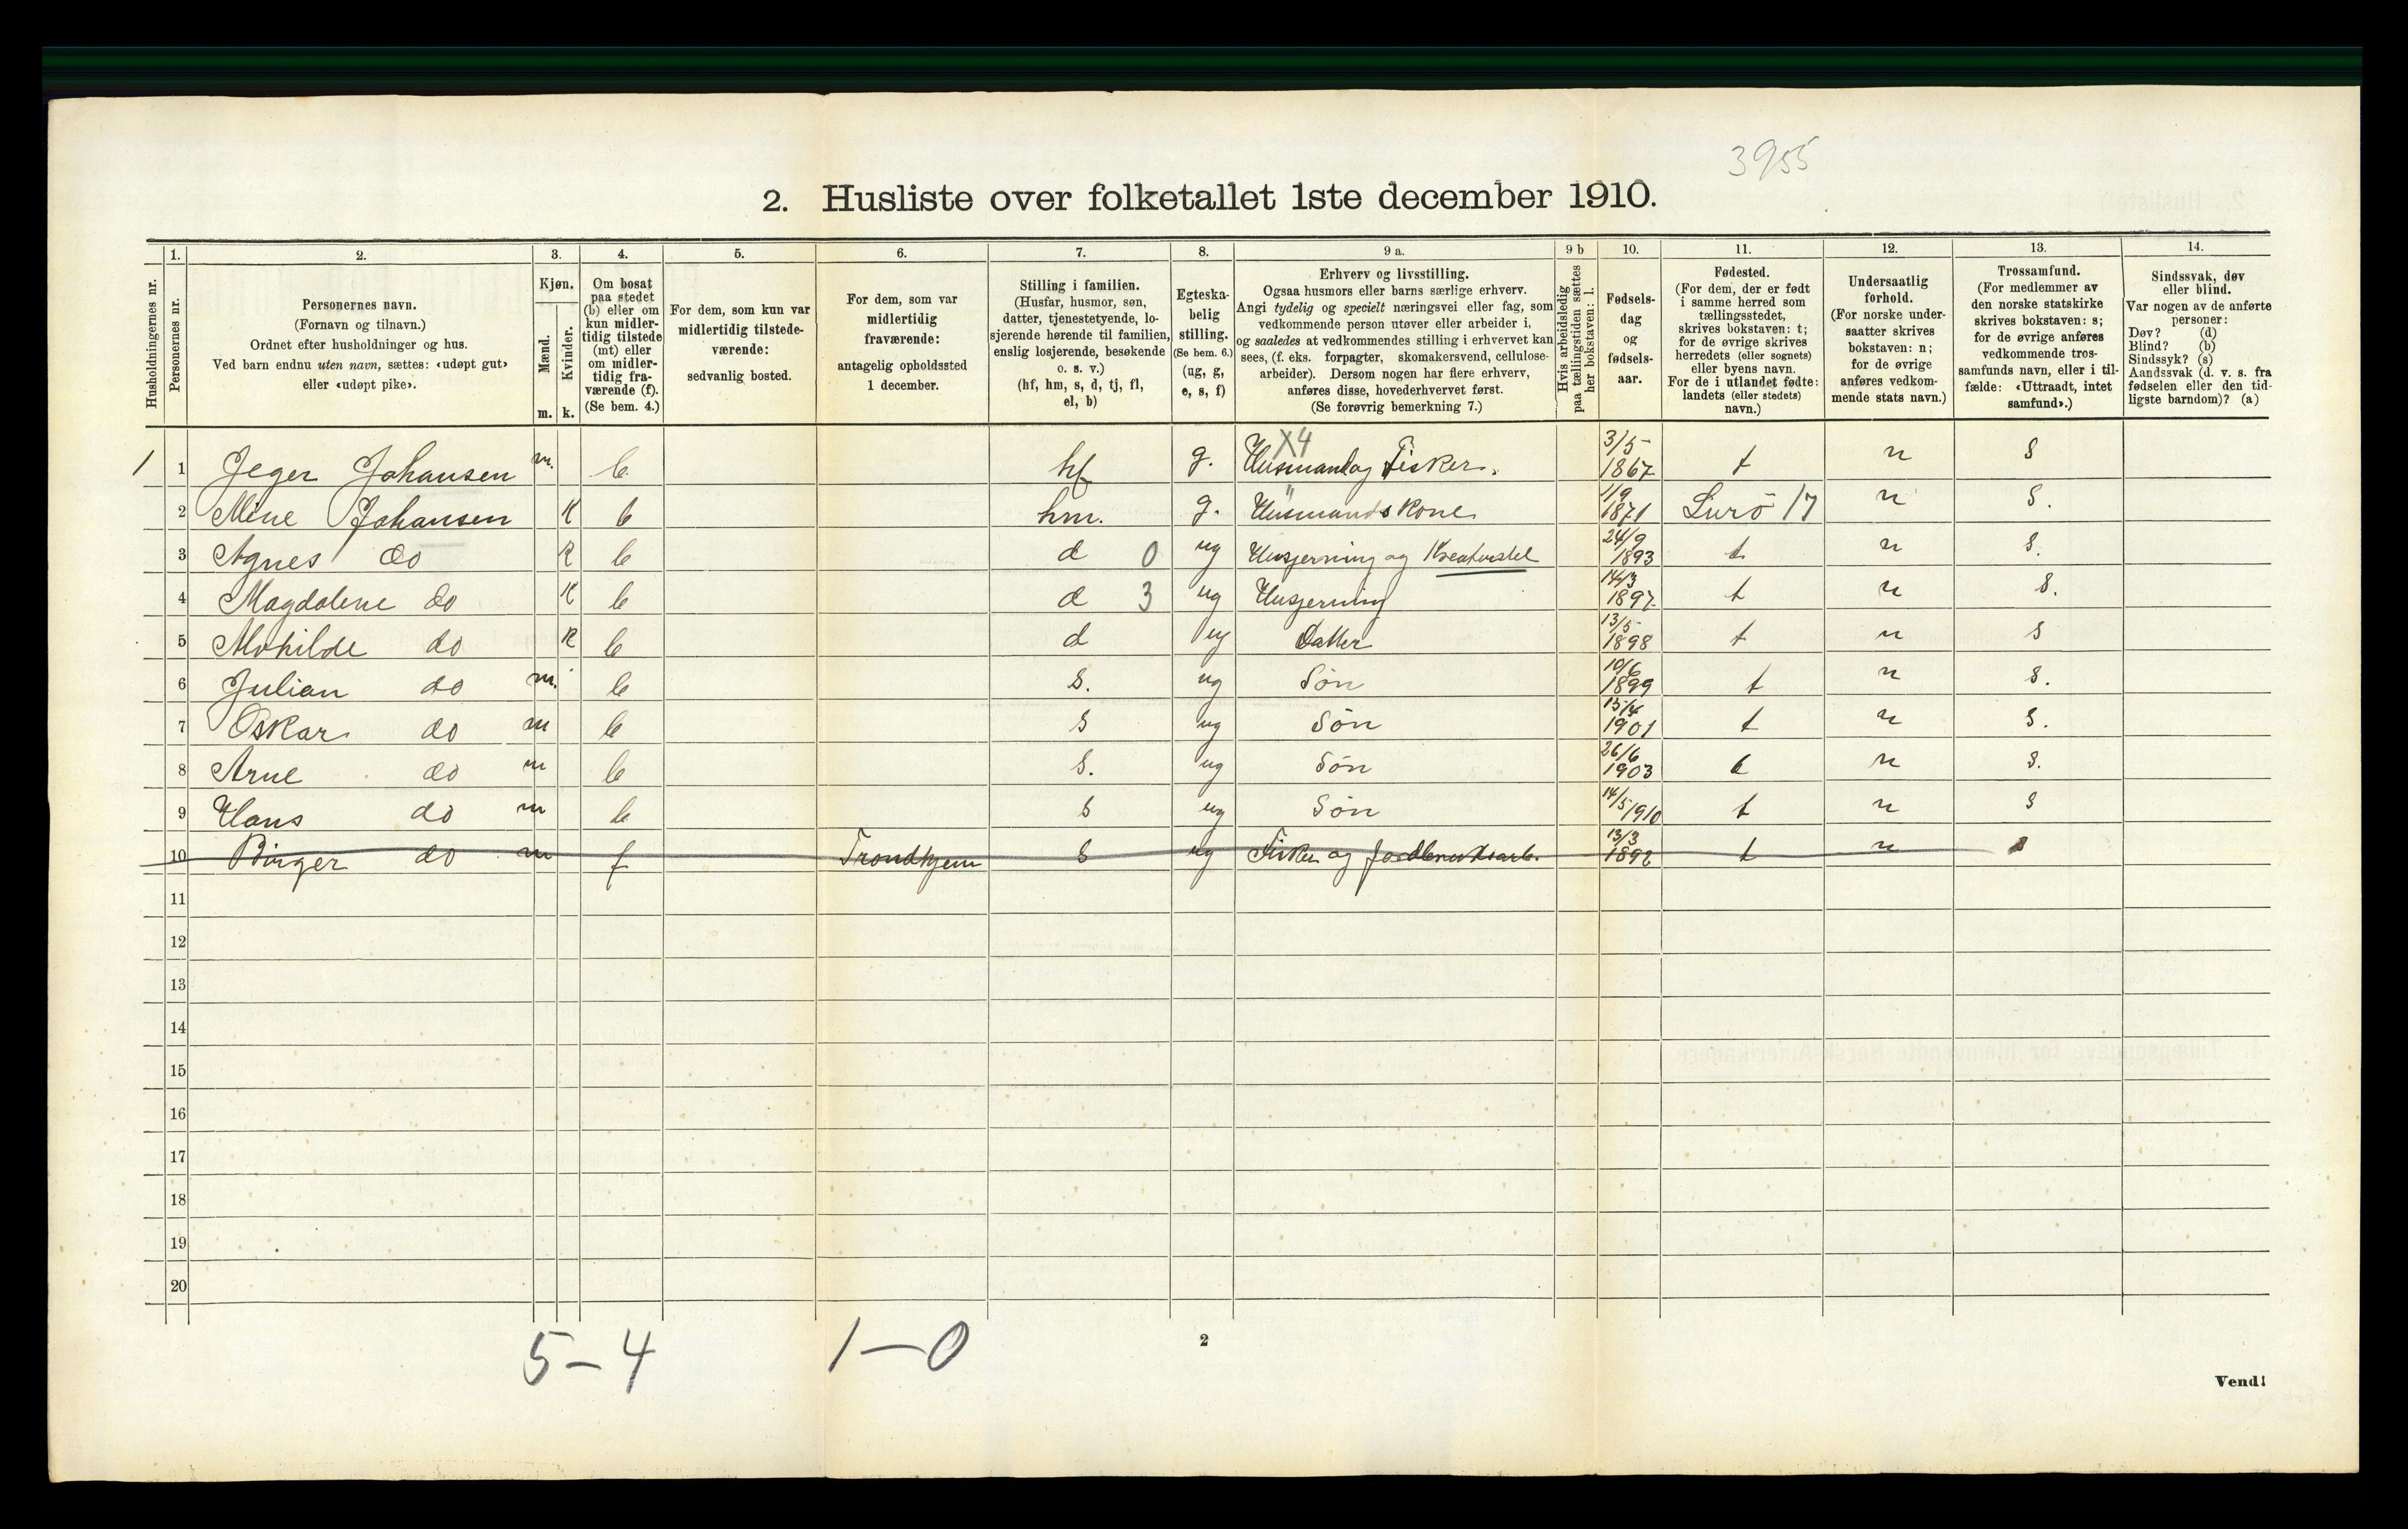 3955
2. Husliste over folketallet 1ste december 1910.
Husholdningernes nr.
1.
Personernes nr.
2.
Personernes navn.
(Fornavn og tilnavn.)
Ordnet efter husholdninger og hus.
Ved barn endnu uten navn, sættes: «udøpt gut»
eller «udøpt pike».
3.
Kjøn.
Mænd.
m.
Kvinder.
k.
4.
Om bosat
paa stedet
(b) eller om
kun midler-
tidig tilstede
(mt) eller
om midler-
tidig fra-
værende (f).
(Se bem. 4.)
5.
For dem, som kun var
midlertidig tilstede-
værende:
sedvanlig bosted.
6.
For dem, som var
midlertidig
fraværende:
antagelig opholdssted
1 december.
7.
Stilling i familien.
(Husfar, husmor, søn,
datter, tjenestetyende, lo-
sjerende hørende til familien,
enslig losjerende, besøkende
o. s. v.)
(hf, hm, s, d, tj, fl,
el, b)
8.
Egteska-
belig
stilling.
(Se bem. 6.)
(ug, g,
e, s, f)
9 a.
Erhverv og livsstilling.
Ogsaa husmors eller barns særlige erhverv.
Angi tydelig og specielt næringsvei eller fag, som
vedkommende person utøver eller arbeider i,
og saaledes at vedkommendes stilling i erhvervet kan
sees, (f. eks. forpagter, skomakersvend, cellulose-
arbeider). Dersom nogen har flere erhverv,
anføres disse, hovederhvervet først.
(Se forøvrig bemerkning 7.)
9 b
Hvis arbeidsledig
paa tællingstiden sættes
her bokstaven: l.
10.
Fødsels-
dag
og
fødsels-
aar.
11.
Fødested.
(For dem, der er født
i samme herred som
tællingsstedet,
skrives bokstaven: t;
for de øvrige skrives
herredets (eller sognets)
eller byens navn.
For de i utlandet fødte:
landets (eller stedets)
navn.)
12.
Undersaatlig
forhold.
(For norske under-
saatter skrives
bokstaven: n;
for de øvrige
anføres vedkom-
mende stats navn.)
13.
Trossamfund.
(For medlemmer av
den norske statskirke
skrives bokstaven: s;
for de øvrige anføres
vedkommende tros-
samfunds navn, eller i til-
fælde: «Uttraadt, intet
samfund».)
14.
Sindssvak, døv
eller blind.
Var nogen av de anførte
personer:
Døv? (d)
Blind? (b)
Sindssyk? (s)
Aandssvak (d. v. s. fra
fødselen eller den tid-
ligste barndom)? (a)
1 1 Jeger Johansen m. b. hf g. X4 Husmand og Fisker. 3/5 1867 t n s
2 Mine Johansen K b hm. g. " Husmands Kone 1/9 1871 Lurö 17 n s.
3 Agnes do K b d 0 ug Husgjerning og Kreaturstel 24/9 1893 t n s.
4 Magdalene do K b d 3 ug Husgjerning 14/3 1897 t n s.
5 Mathilde do K b d ug Datter 13/5 1898 t n s
6 Julian do m. b s. ug Søn 10/6 1899 t n s.
7 Oskar do m b s ug Søn 15/4 1901 t n s.
8 Arne do m b s. ug Søn 26/6 1903 t n s.
9 Hans do m b s ug Søn 14/5 1910 t n s
10 Birger do m f Trondhjem s ug Fisker og Jordbruksarb. 13/3 1892 t n s
11
12
13
14
15
16
17
18
19
20
5 – 4 1 – 0
2
Vend!